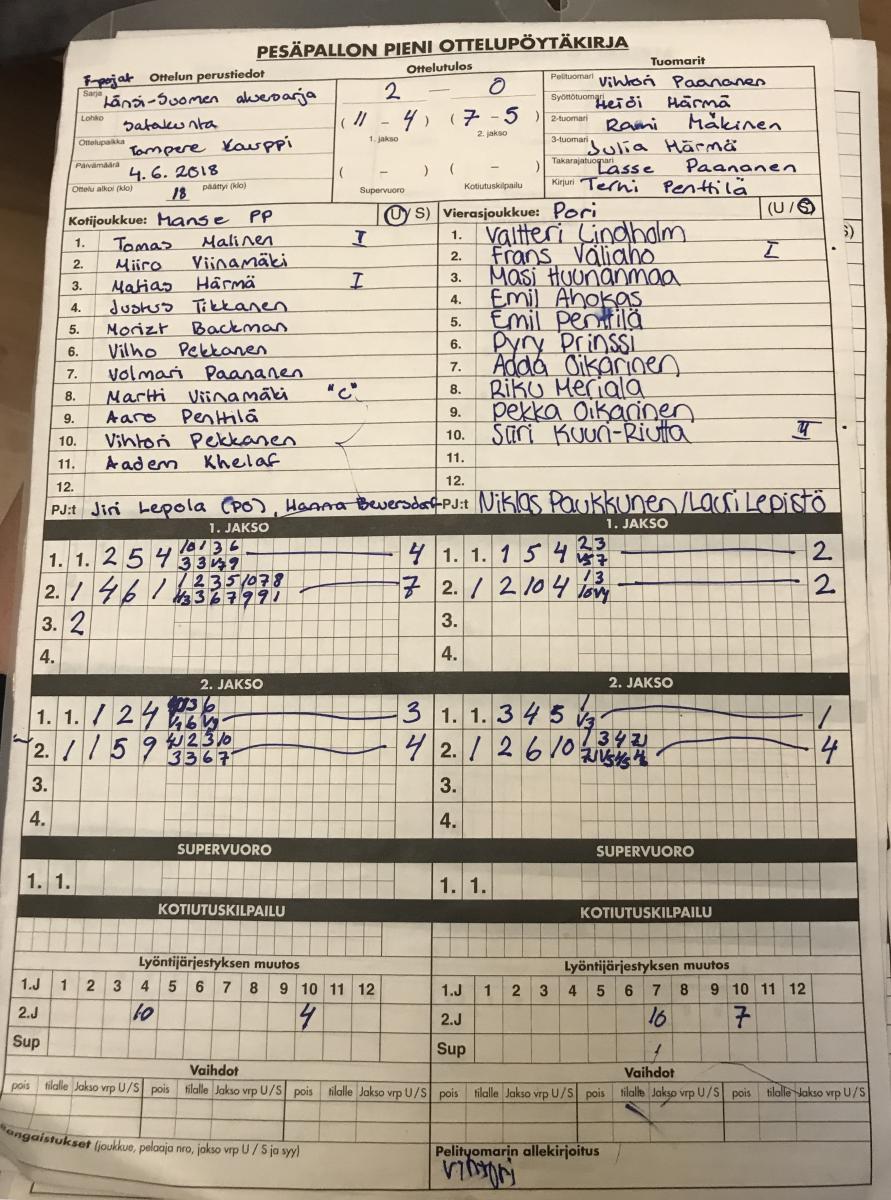 PESÄPALLON PIENI OTTELUPÖYTÄKIRJA
F-pojat Ottelun perustiedot
Ottelutulos
Tuomarit
Sarja Länsi-Suomen aluesarja
2 — 0
Pelituomari Vihtori Paananen
Lohko Satakunta
( 11 - 4 ) ( 7 - 5 )
1. jakso 2. jakso
Syöttötuomari Heidi Härmä
Ottelupaikka Tampere Kauppi
2-tuomari Rami Mäkinen
3-tuomari Julia Härmä
Päivämäärä 4.6.2018
( - ) ( - )
Supervuoro Kotiutuskilpailu
Takarajatuomari Lasse Paananen
Ottelu alkoi (klo) 18 päättyi (klo)
Kirjuri Terhi Penttilä
Kotijoukkue: Manse PP (U/S)
1. Tomas Malinen I
2. Miiro Viinamäki
3. Matias Härmä I
4. Justus Tikkanen
5. Moritz Backman
6. Vilho Pekkanen
7. Volmari Paananen
8. Martti Viinamäki "C"
9. Aaro Penttilä
10. Vihtori Pekkanen
11. Aadem Khelaf
12.
PJ:t Jiri Lepola (PO), Hanna Beversdorf
Vierasjoukkue: Pori (U/S)
1. Valtteri Lindholm
2. Frans Väliaho I
3. Masi Huunanmaa
4. Emil Ahokas
5. Emil Penttilä
6. Pyry Prinssi
7. Adda Oikarinen
8. Riku Meriala
9. Pekka Oikarinen
10. Siiri Kuuri-Riutta II
11.
12.
PJ:t Niklas Paukkunen/Lauri Lepistö
1. JAKSO
1. 1. 2 5 4 4
2. 1 4 6 1 7
3. 2
4.
1. JAKSO
1. 1. 1 5 4 2
2. 1 2 10 4 2
3.
4.
2. JAKSO
1. 1. 1 2 4 3
2. 1 1 5 9 4
3.
4.
2. JAKSO
1. 1. 3 4 5 1
2. 1 2 6 10 4
3.
4.
SUPERVUORO
1. 1.
SUPERVUORO
1. 1.
KOTIUTUSKILPAILU
KOTIUTUSKILPAILU
Lyöntijärjestyksen muutos
1.J 1 2 3 4 5 6 7 8 9 10 11 12
2.J 10 4
Sup
Lyöntijärjestyksen muutos
1.J 1 2 3 4 5 6 7 8 9 10 11 12
2.J 10 7
Sup
Vaihdot
pois tilalle Jakso vrp U/S pois tilalle Jakso vrp U/S pois tilalle Jakso vrp U/S
Vaihdot
pois tilalle Jakso vrp U/S pois tilalle Jakso vrp U/S pois tilalle Jakso vrp U/S
Rangaistukset (joukkue, pelaaja nro, jakso vrp U / S ja syy)
Pelituomarin allekirjoitus